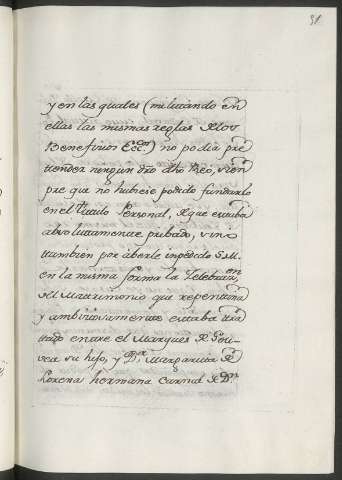 31
y en las quales (militando en
ellas las mismas reglas de los
Beneficios Eccos) no podia pre
tender ningun dro dho Reo, siem
pre que no hubiese podido fundarlo
en el titulo Personal, de que estaba
absolutamente pribado, y
tambien por aberle inpedido S.M.
en la misma forma la Zelebraon
del Matrimonio que repentina
y ambiciosamente estaba tra
tado entre el Marques de Gou-
vea su hijo, y Da Margarita de
Lorena hermana carnal de Dn